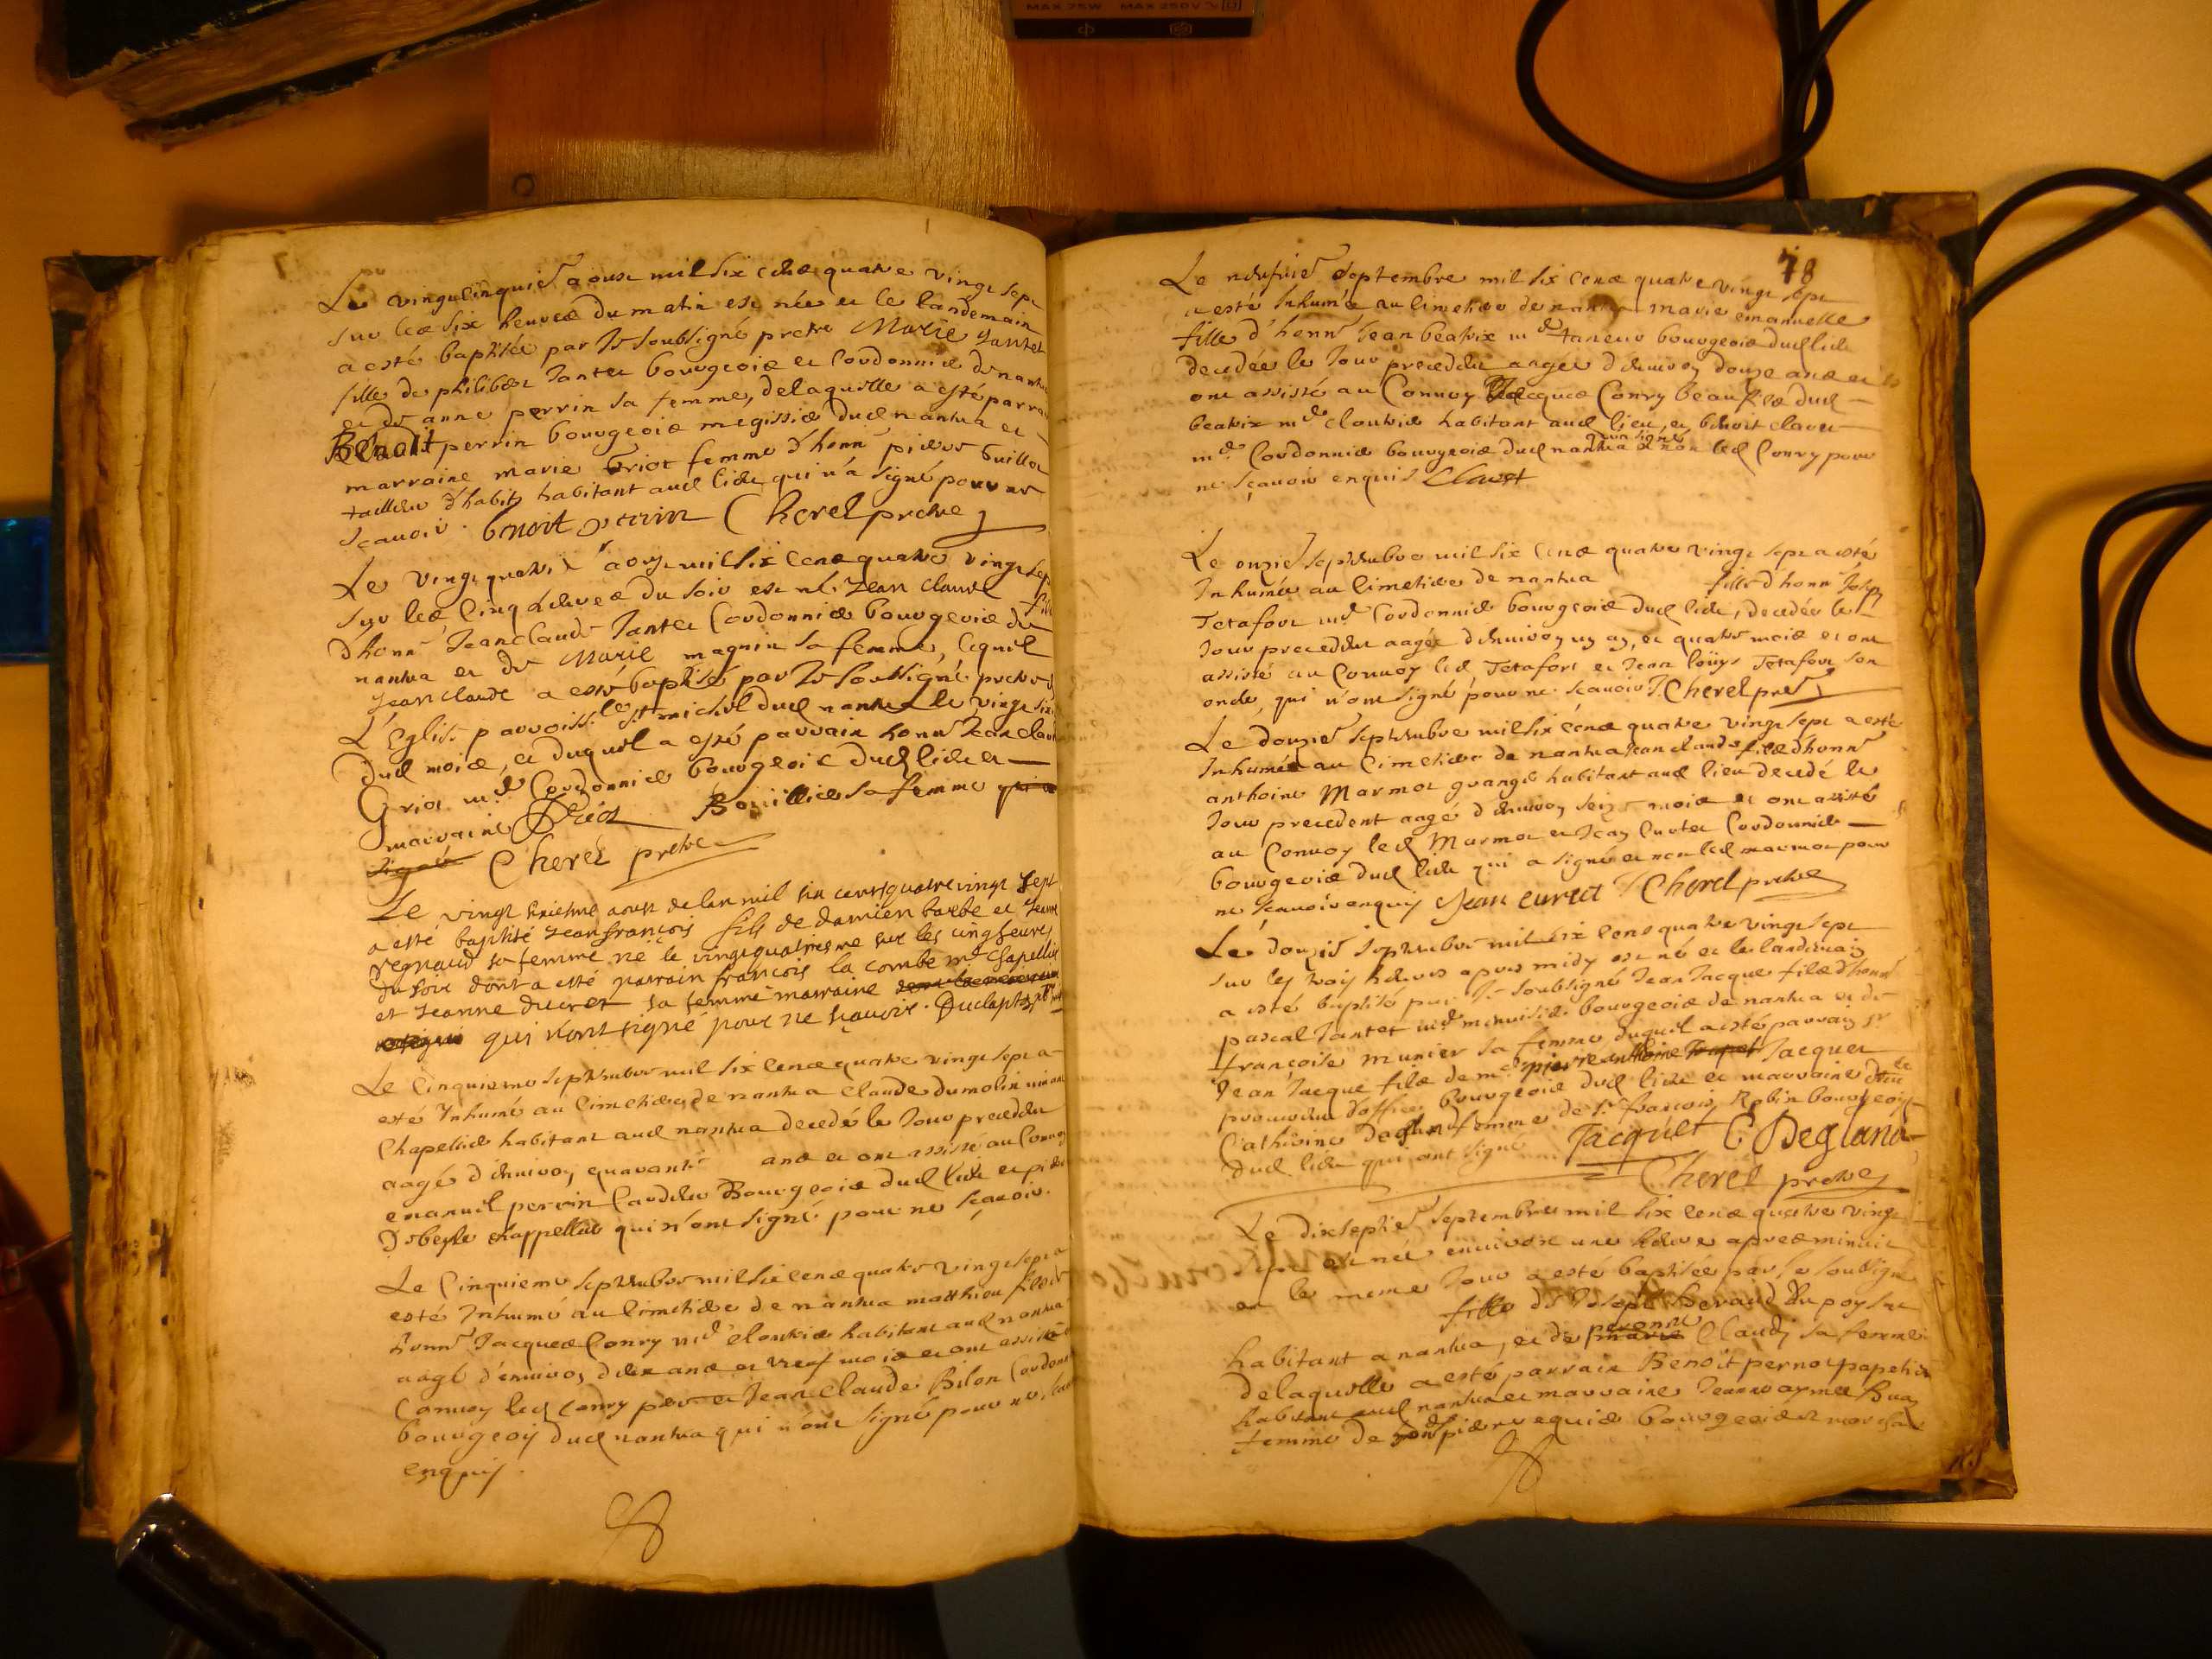 MAX 75W MAX 250V
Le vingtcinquie aoust mil six cens quatre vingt sept
sur les six heures du matin est née et le landemain
a esté baptisée par Je soubsigné pretre Marie Jantet
fille de philibert Jantet bourgeois et Cordonnier de nantua
et de anne perrin sa femme, delaquelle a esté parrain
Benoit perrin bourgeois megissier dud nantua et
marraine marie Griot femme d'honn pierre Guillot
tailleur d'habits habitant aud lieu qui n'a signé pour ne
sçavoir. benoit perrin Cherel pretre
Le vingt quatrie aoust mil six cens quatre vingt sept
sur les cinq heures du soir est né Jean Claude fils
d'honn Jean claude Jantet Cordonnier bourgeois de
nantua et de Marie magnin sa femme, lequel
Jean claude a esté baptisé par Je soussigné pretre
L'Eglise parroissle St michel dud nantua le vingt six
dud mois, et duquel a esté parrain honn Jean claude
Griot md Cordonnier bourgeois dud lieu et
marraine Bouillier sa femme qui a
signé Cherel pretre
Le vingt sixiesme aoust de lan mil six cents quatre vingt sept
a esté baptisé Jean françois fils de damien barbe et Jeanne
regnaud sa femme né le vingt quatriesme sur les cinq heures
du soir dont a esté parrain françois la combe md chapellier
et Jeanne ducret sa femme marraine
qui n'ont signé pour ne sçavoir.
Le Cinquieme septembre mil six cens quatre vingt sept a
esté Inhumé au Cimetiere de nantua Claude dumolin vivant
Chapellier habitant aud nantua decedé le Jour precedent
aagé d'environ quarante ans et ont assisté au Convoy
emanuel perrin Cardeur Bourgeois dud lieu et pierre
chappellier qui n'ont signé pour ne sçavoir.
Le Cinquieme septembre mil six cens quatre vingt sept a
esté Inhumé au Cimetiere de nantua matthieu fils de
honn Jacques Conry md cloutier habitant aud nantua
aagé d'environ deux ans et neuf mois et ont assisté
Convoy led Conry pere et Jean claude Bilon Cordonnier
bourgeoy dud nantua qui n'ont signé pour ne sçavoir
enquis.
78
Le neufvie septembre mil six cens quatre vingt sept
a esté Inhumée au Cimetiere de nantua marie emanuelle
fille d'honn Jean beatrix md taneur bourgeois dud lieu
decedée le Jour precedent aagée d'environ douze ans et
ont assisté au Convoy Jacques Conry beaufils dud
beatrix md cloutier habitant aud lieu, et benoit clavet
md Cordonnier bourgeois dud nantua qui a signé et non led Conry pour
ne sçavoir enquis Clavet
Le onzie septembre mil six cens quatre vingt sept a esté
Inhumée au Cimetiere de nantua fille d'honn Joseph
Tetafort md Cordonnier bourgeois dud lieu, decedée le
Jour precedent aagée d'environ un an, et quatre mois et ont
assisté au Convoy led Tetafort et Jean loüys Tetafort son
oncle, qui n'ont signé pour ne sçavoir. Cherel pre
Le douzie septembre mil six cens quatre vingt sept a esté
Inhumé au Cimetiere de nantua Jean claude fils d'honn
anthoine Marmot granger habitant aud lieu decedé le
Jour precedent aagé d'environ seize mois et ont assisté
au Convoy led Marmot et Jean Curtet Cordonnier
bourgeois dud lieu qui a signé et non led marmot pour
ne sçavoir enquis Jean curtet Cherel pretre
Le douzie septembre mil six cens quatre vingt sept
sur les trois heures apres midy est né et le landemain
a esté baptisé par Je soubsigné Jean Jacque fils d'honn
pascal Jantet md menuisier bourgeois de nantua et de
françoise munier sa femme, duquel a esté parrain sr
Jean Jacque fils de me pierre anthoine Jacquet
procureur d'office bourgeois dud lieu et marraine dlle
Catherine Deglan femme de sr françois Robin bourgeois
dud lieu qui ont signé Jacquet C Degland
Cherel pretre
Le dixseptie septembre mil six cens quatre vingt
sept est née environ une heure apres minuit
et le meme Jour a esté baptisée par Je soussigné
fille de Joseph Beraud
habitant a nantua, et de peronne Claudy sa femme
delaquelle a esté parrain Benoit pernot papetier
habitant aud nantua et marraine Jeanne aymee
femme de pierre equier bourgeois et marchand